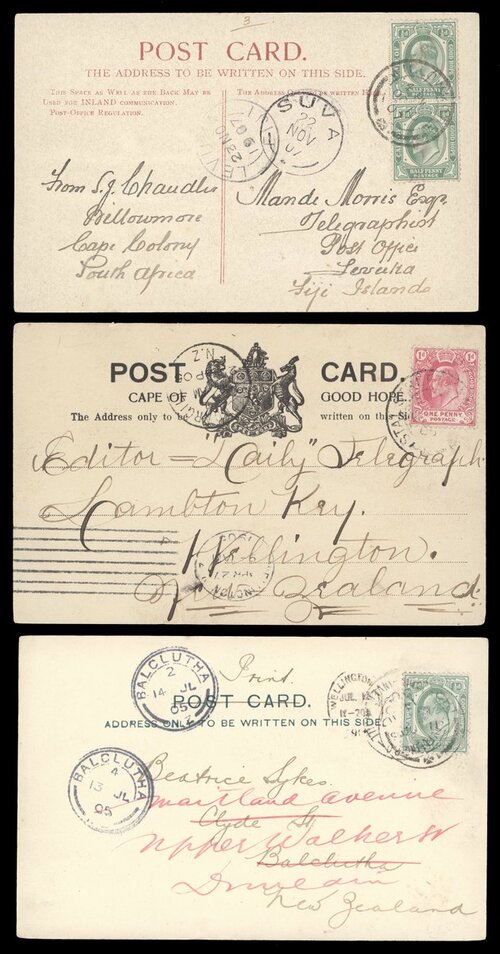 3
POST CARD.
THE ADDRESS TO BE WRITTEN ON THIS SIDE.
THIS SPACE AS WELL AS THE BACK MAY BE
USED FOR INLAND COMMUNICATION.
POST-OFFICE REGULATION.
THE ADDRESS ONLY TO BE WRITTEN HERE
HALF PENNY
POSTAGE
HALF PENNY
POSTAGE
SUVA
22
NOV
07
from S.J. Chandler
Billowmore
Cape Colony
South Africa
Maude Morris Esq.
Telegraphist
Post Office
Levuka
Fiji Islands
POST CARD.
CAPE OF GOOD HOPE.
The Address only to be written on this Side
N.Z.
1d
ONE PENNY
POSTAGE
Editor "Daily" Telegraph
Lambton Key.
Wellington.
New Zealand.
Print.
POST CARD.
ADDRESS ONLY TO BE WRITTEN ON THIS SIDE.
BALCLUTHA
2
14 JL
05
BALCLUTHA
4
13 JL
05
WELLINGTON
JUL 12
Beatrice Sykes
Maitland Avenue
Clyde St
Upper Walker St
Balclutha
Dunedin
New Zealand